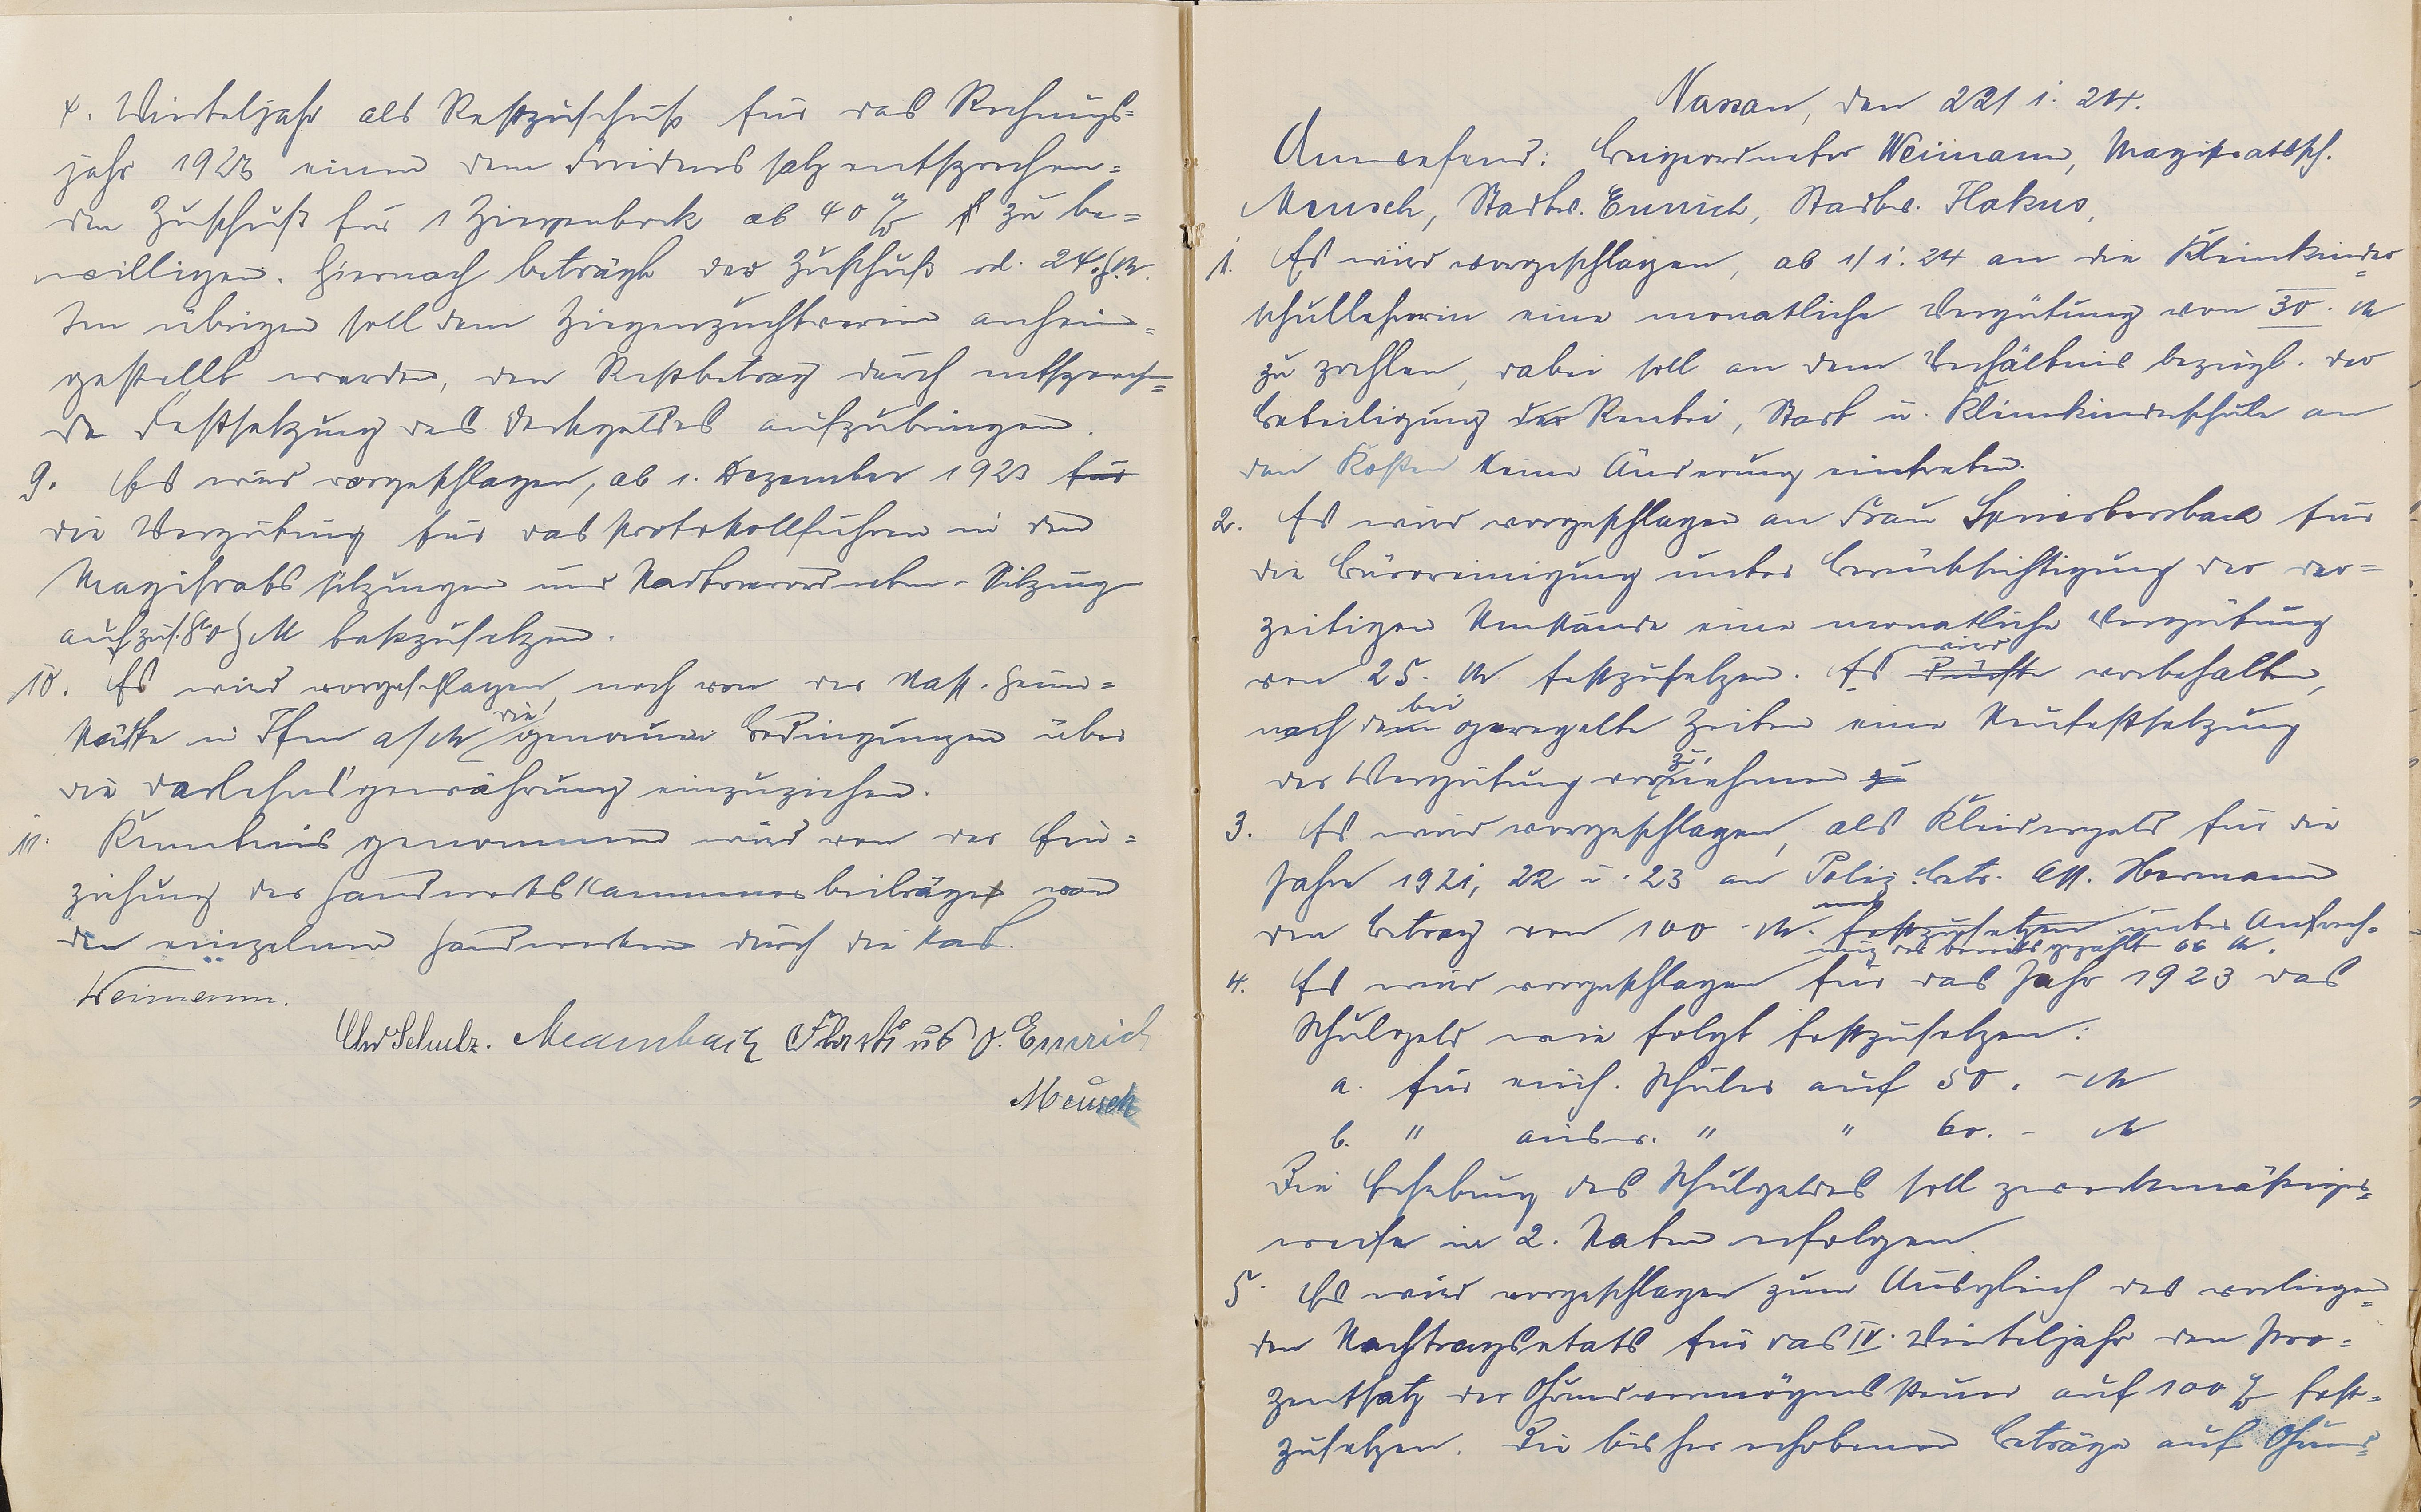 4. Vierteljahr als Restzuschuß für das Rechnungs-
jahr 1923 einen dem Friedenssatz entsprechen-
den Zuschuß für 1 Ziegenbock ab 40 % zu be-
willigen. Hiernach beträgt der Zuschuß rd. 24. G.M.
Im übrigen soll dem Ziegenzuchtverein anheim-
gestellt werden, den Restbetrag durch entsprechen-
de Festsetzung des Deckgeldes aufzubringen.
9. Es wird vorgeschlagen, ab 1. Dezember 1923 für
die Vergütung für das Protokollführen in den
Magistratssitzungen und Stadtverordneten-Sitzung
auf zus. M festzusetzen.
10. Es wird vorgeschlagen, noch von der Nass.
in a/M die genauen Bedingungen über
die Darlehnsgewährung einzuziehen.
11. Kenntnis genommen wird von der Ein-
ziehung der Handwerkskammerbeiträge von
den einzelnen Handwerkern durch die
Weimann.
Schulz. Flakus O. Emrich
Meusch
Nassau, den 22/1. 24.
Anwesend: Beigeordneter Weimann, Magistratssch.
Meusch, Stadtv. Emrich, Stadtv. Flakus,
1. Es wird vorgeschlagen, ab 1/1. 24 an die Kleinkinder-
schullehrerin eine monatliche Vergütung von 30. M
zu zahlen, dabei soll an dem Verhältnis bezügl. der
Beteiligung der Rentei, Stadt u. Kleinkinderschule an
den Kosten keine Änderung eintreten.
2. Es wird vorgeschlagen an Frau für
die Büroreinigung unter Berücksichtigung der der-
zeitigen Umstände eine monatliche Vergütung
von 25. M festzusetzen. Es wird vorbehalten,
nach dem bei geregelte Zeiten eine Neufestsetzung
der Vergütung vorzunehmen zu
3. Es wird vorgeschlagen, als Kleidergeld für die
Jahre 1921, 22 u. 23 an Poliz. Betr. Ass. Hermann
den Betrag von 100 - M. festzusetzen unter Anrech-
nung des bereits gezahlt 66 M.
4. Es wird vorgeschlagen für das Jahr 1923 das
Schulgeld wie folgt festzusetzen:
a. für einh. Schüler auf 50. - M
b. " ausw. " " 60. - M
Die Erhebung des Schulgeldes soll zweckmäßiger-
weise in 2. Raten erfolgen.
5. Es wird vorgeschlagen zum Ausgleich des vorliegen-
den Nachtragsetats für das IV. Vierteljahr den Pro-
zentsatz der Grundvermögenssteuer auf 100 % fest-
zusetzen. Die bisher erhobenen Beträge auf Grund-